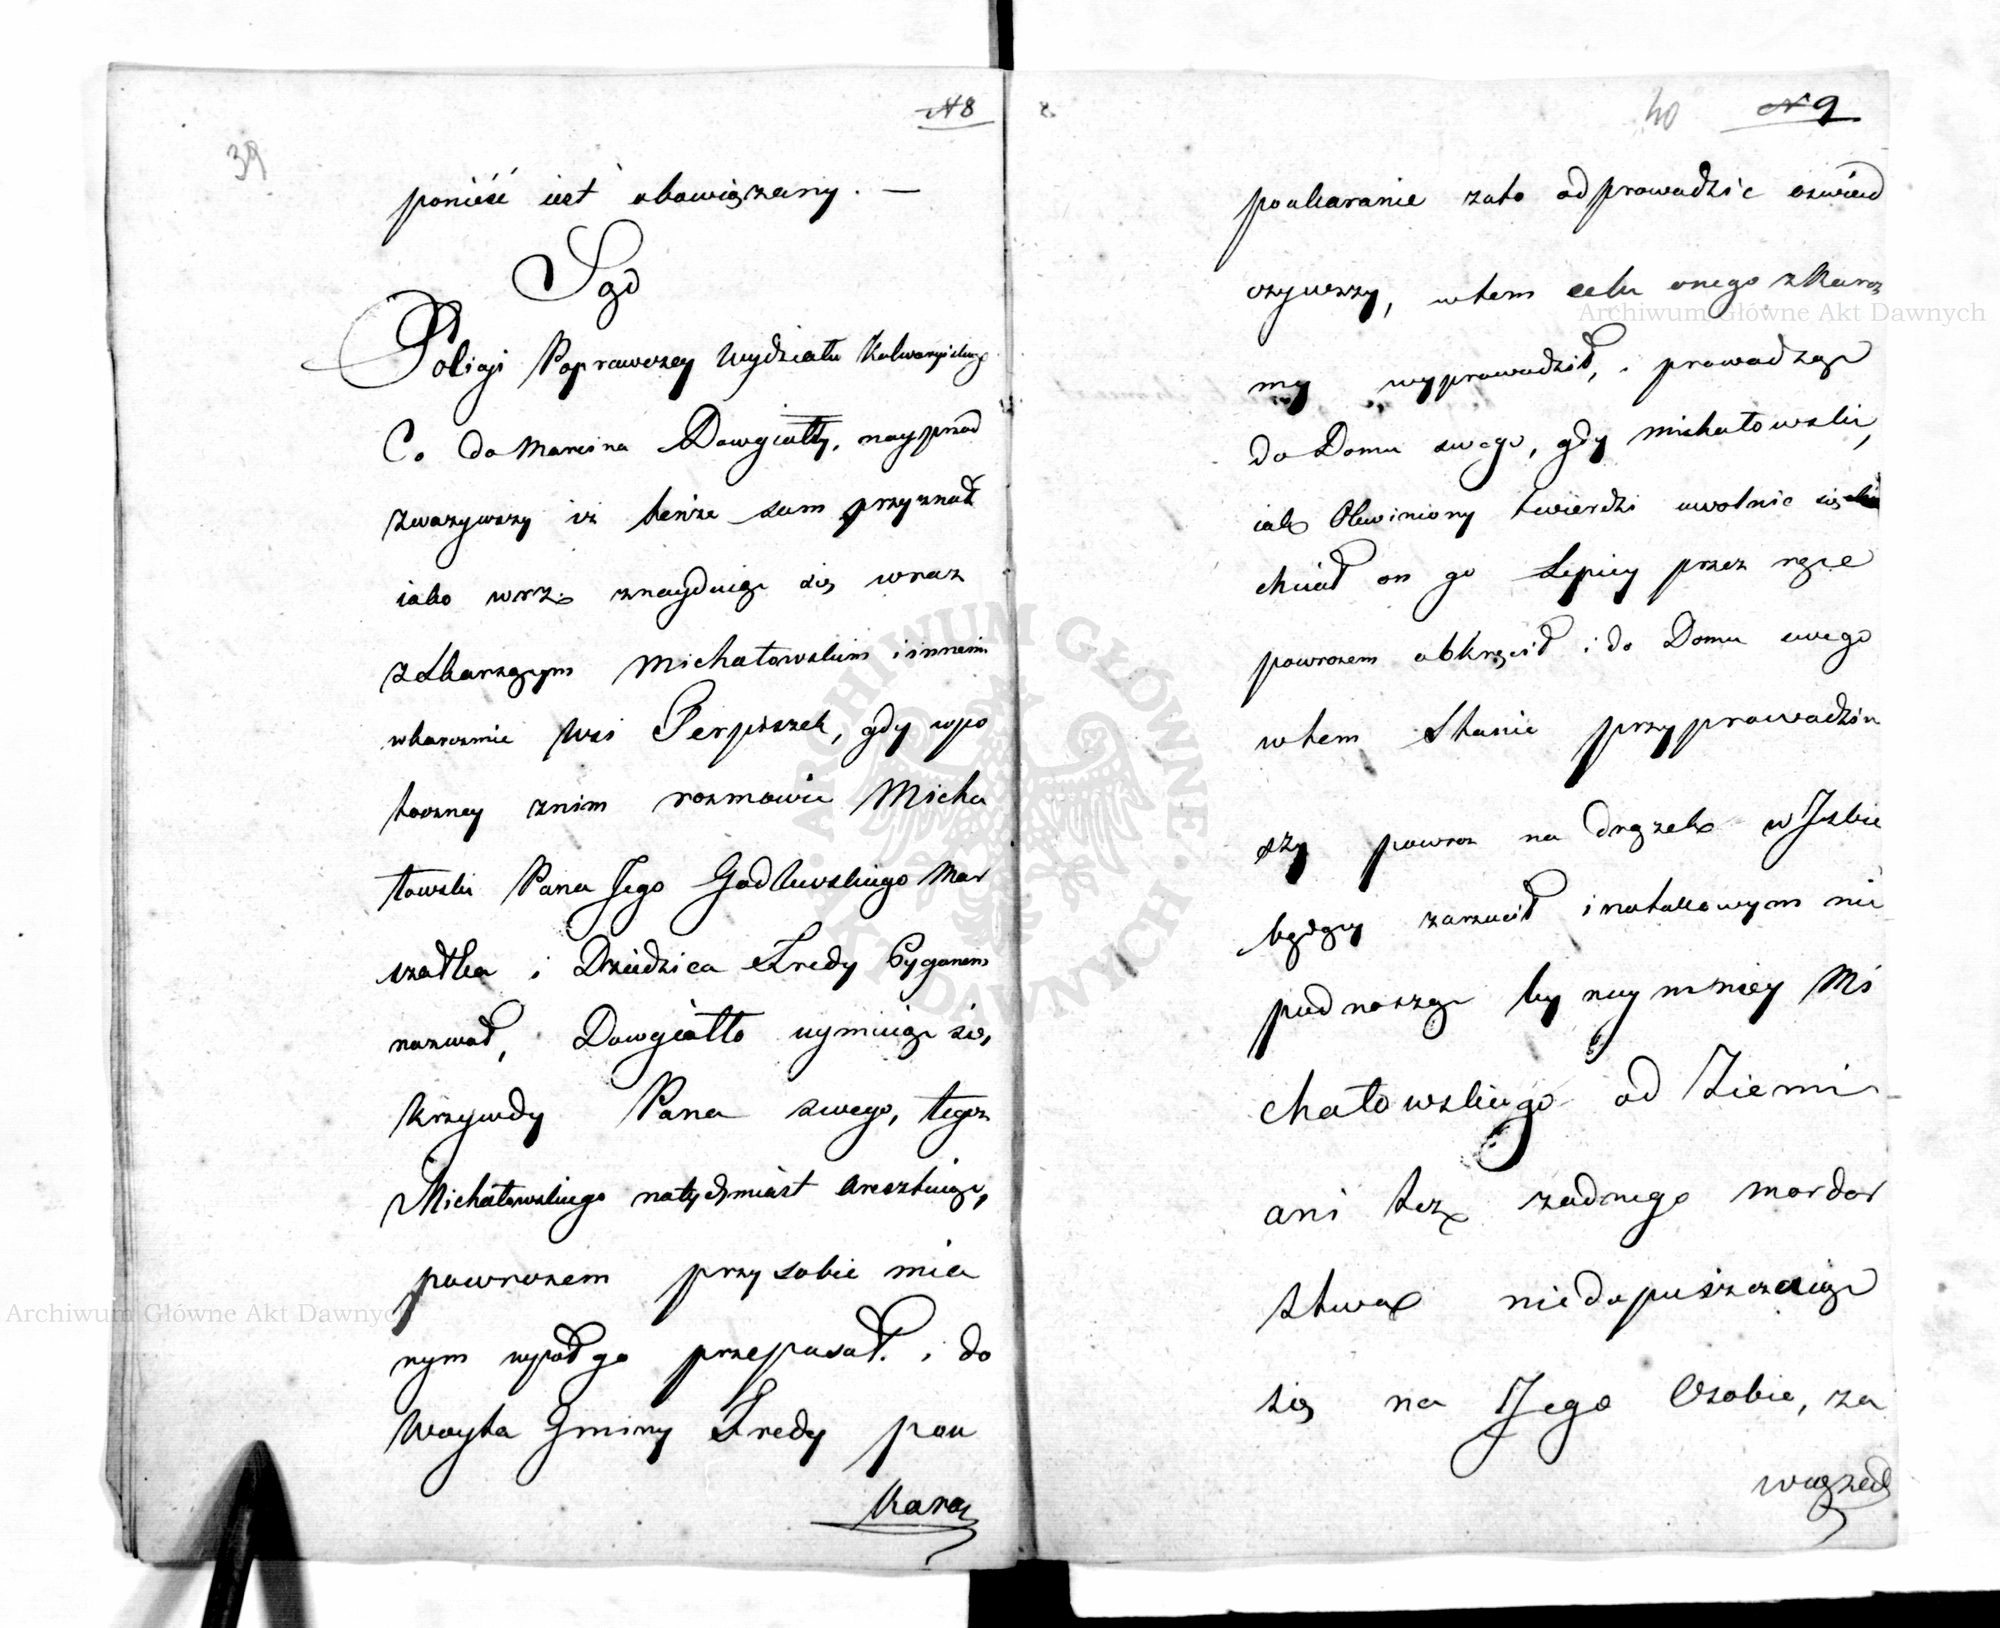 39
N 8
ponieść iest obowiązany. —
Sąd
Policyi Poprawczey Wydziału Kalwaryiskgo
Co do Marcina Dowgiałły, nayprzód
zważywszy iż tenże sam przyznał
iako wrz. znayduiąc się wraz
z Skarzącym Michałowskim i innemi
wkarczmie Wsi Perpiszek, gdy wpo
toczney znim rozmowie Micha
łowski Pana Jego Godlewskiego Mar
szałka i Dziedzica Fredy Cyganem
nazwał, Dowgiałło uymuiąc się,
krzywdy Pana swego, tegoż
Michałowskiego natychmiast aresztuiąc,
powrozem przysobie mia
nym wpół go przepasał. i do
Woyta Gminy Fredy pou
Kara
40
N 9
poukaranie zato odprowadzić oświad
czywszy, wtem celu onego z Karcz
my wyprowadził, i prowadząc
do Domu swego, gdy Michałowski,
iak Obwiniony twierdzi uwolnić się
chciał on go Lepiey przez ręce
powrozem obkręcił i do Domu swego
wtem Stanie przyprowadziw
szy powroz na drązek w Izbie
będący zarzucił i natakowym nie
podnosząc by naymniey Mi
chałowskiego od Ziemi
ani też zadnego mordor
stwa niedopuszczaiąc
się na Jego Osobie, za
wiązał
Archiwum Główne Akt Dawnych
Archiwum Główne Akt Dawnych
ARCHIWUM GŁÓWNE AKT DAWNYCH